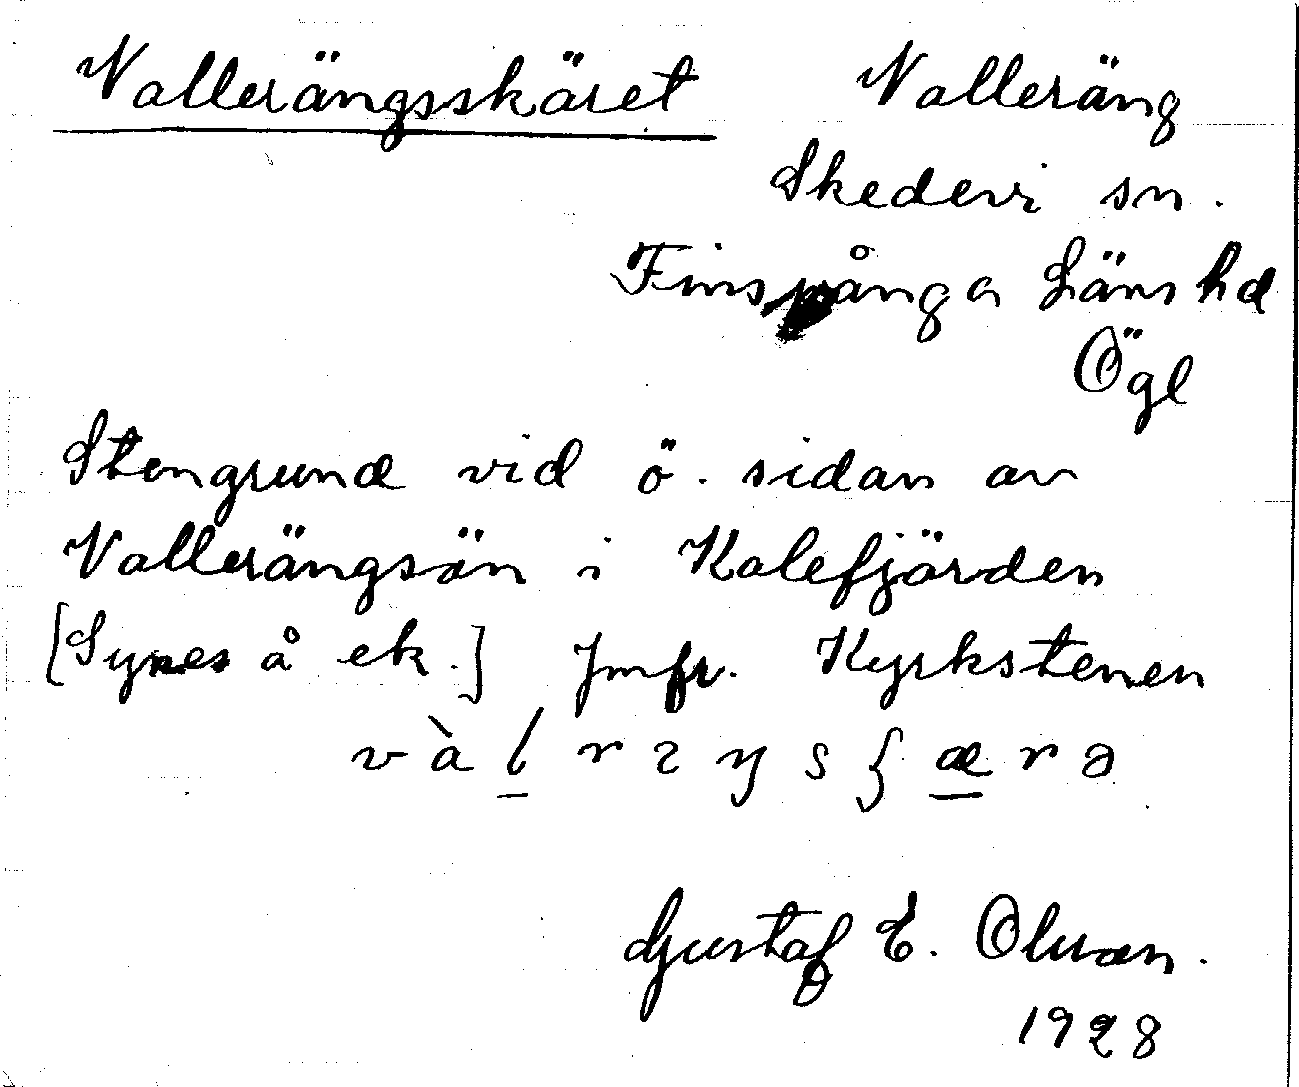 Vallerängsskäret
Valleräng
Skedevi sn.
Finspånga Läns hd
Ögl
Stengrund vid ö. sidan av
Vallerängsön i Kalefjärden
[Synes å ek.] Jmfr. Kyrkstenen
Gustaf E. Olsson.
1928